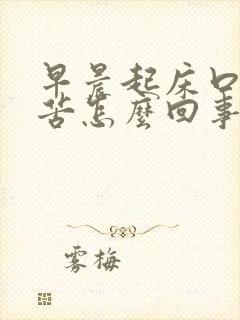 早晨起床口
苦怎麼回事
雾梅